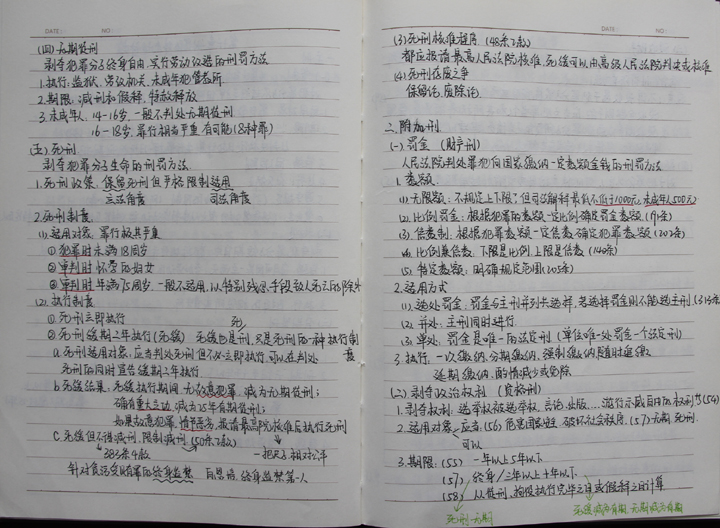 DATE: NO:
(四)无期徒刑
剥夺犯罪分子终身自由,实行劳动改造的刑罚方法
1.执行:监狱、劳改机关、未成年犯管教所
2.期限:减刑和假释,特赦释放
3.未成年人:14-16岁,一般不判处无期徒刑
16-18岁,罪行相当严重,有可能(8种罪)
(五)死刑
剥夺犯罪分子生命的刑罚方法
1.死刑政策:保留死刑但严格限制适用
立法角度 司法角度
2.死刑制度
(1)适用对象:罪行极其严重
①犯罪时未满18周岁
②审判时怀孕的妇女
③审判时年满75周岁,一般不适用,以特别残忍手段致人死亡的除外
(2)执行制度
①死刑立即执行 死
②死刑缓期二年执行(死缓) 死缓也是刑,只是死刑的一种执行制度
a.死刑适用对象,应当判处死刑但不必立即执行,可以在判处
死刑的同时宣告缓期二年执行
b.死缓结果:死缓执行期间,无故意犯罪,减为无期徒刑;
确有重大立功,减为25年有期徒刑;
如果故意犯罪,情节恶劣,报请最高院核准后执行死刑
C.死缓但不得减刑,限制减刑(50条2款)
383条4款 一把尺子相对公平
针对贪污受贿罪的终身监禁 白恩培,终身监禁第一人
DATE: NO:
(3)死刑核准程序(48条2款)
都应报请最高人民法院核准,死缓可以由高级人民法院判决或核准
(4)死刑存废之争
保留论,废除论
二、附加刑
(一)罚金(财产刑)
人民法院判处罪犯向国家缴纳一定数额金钱的刑罚方法
1.数额
(1)无限额:不规定上下限,但司法解释最低不低于1000元,未成年人500元
(2)比例罚金:根据犯罪的数额一定比例确定罚金数额
(3)倍数制:根据犯罪数额一定倍数确定犯罪数额(202条)
(4)比例兼倍数:下限是比例,上限是倍数(140条)
(5)特定数额:明确规定范围(205条)
2.适用方式
(1)选处罚金:罚金与主刑并列供选择,若选择罚金则不能选主刑
(2)并处:主刑同时进行
(3)单处:罚金是唯一的法定刑(单位唯一处罚金一个法定刑)
3.执行:一次缴纳,分期缴纳,强制缴纳,随时追缴
延期缴纳,酌情减少或免除
(二)剥夺政治权利(资格刑)
1.剥夺权利:选举权被选举权,言论,出版....游行示威自由的权利等(54)
2.适用对象:应当(56)危害国家安全,破坏社会秩序,(57)无期,死刑
可以
3.期限:(55)一年以上5年以下
(57)终身/三年以上十年以下
(58)从徒刑,拘役执行完毕之日或假释之日计算
死刑、无期
死缓减为有期,无期减为有期